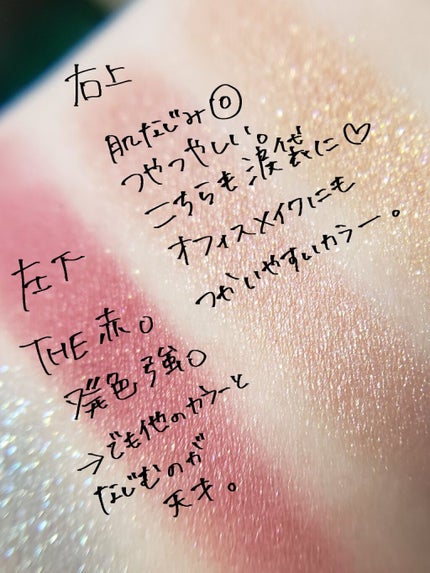 右上
肌なじみ◎
つやつやしい。
こちらも涙袋に♡
オフィスメイクにも
つかいやすいカラー。
左下
THE 赤。
発色強。
→でも他のカラーと
なじむのが
天才。